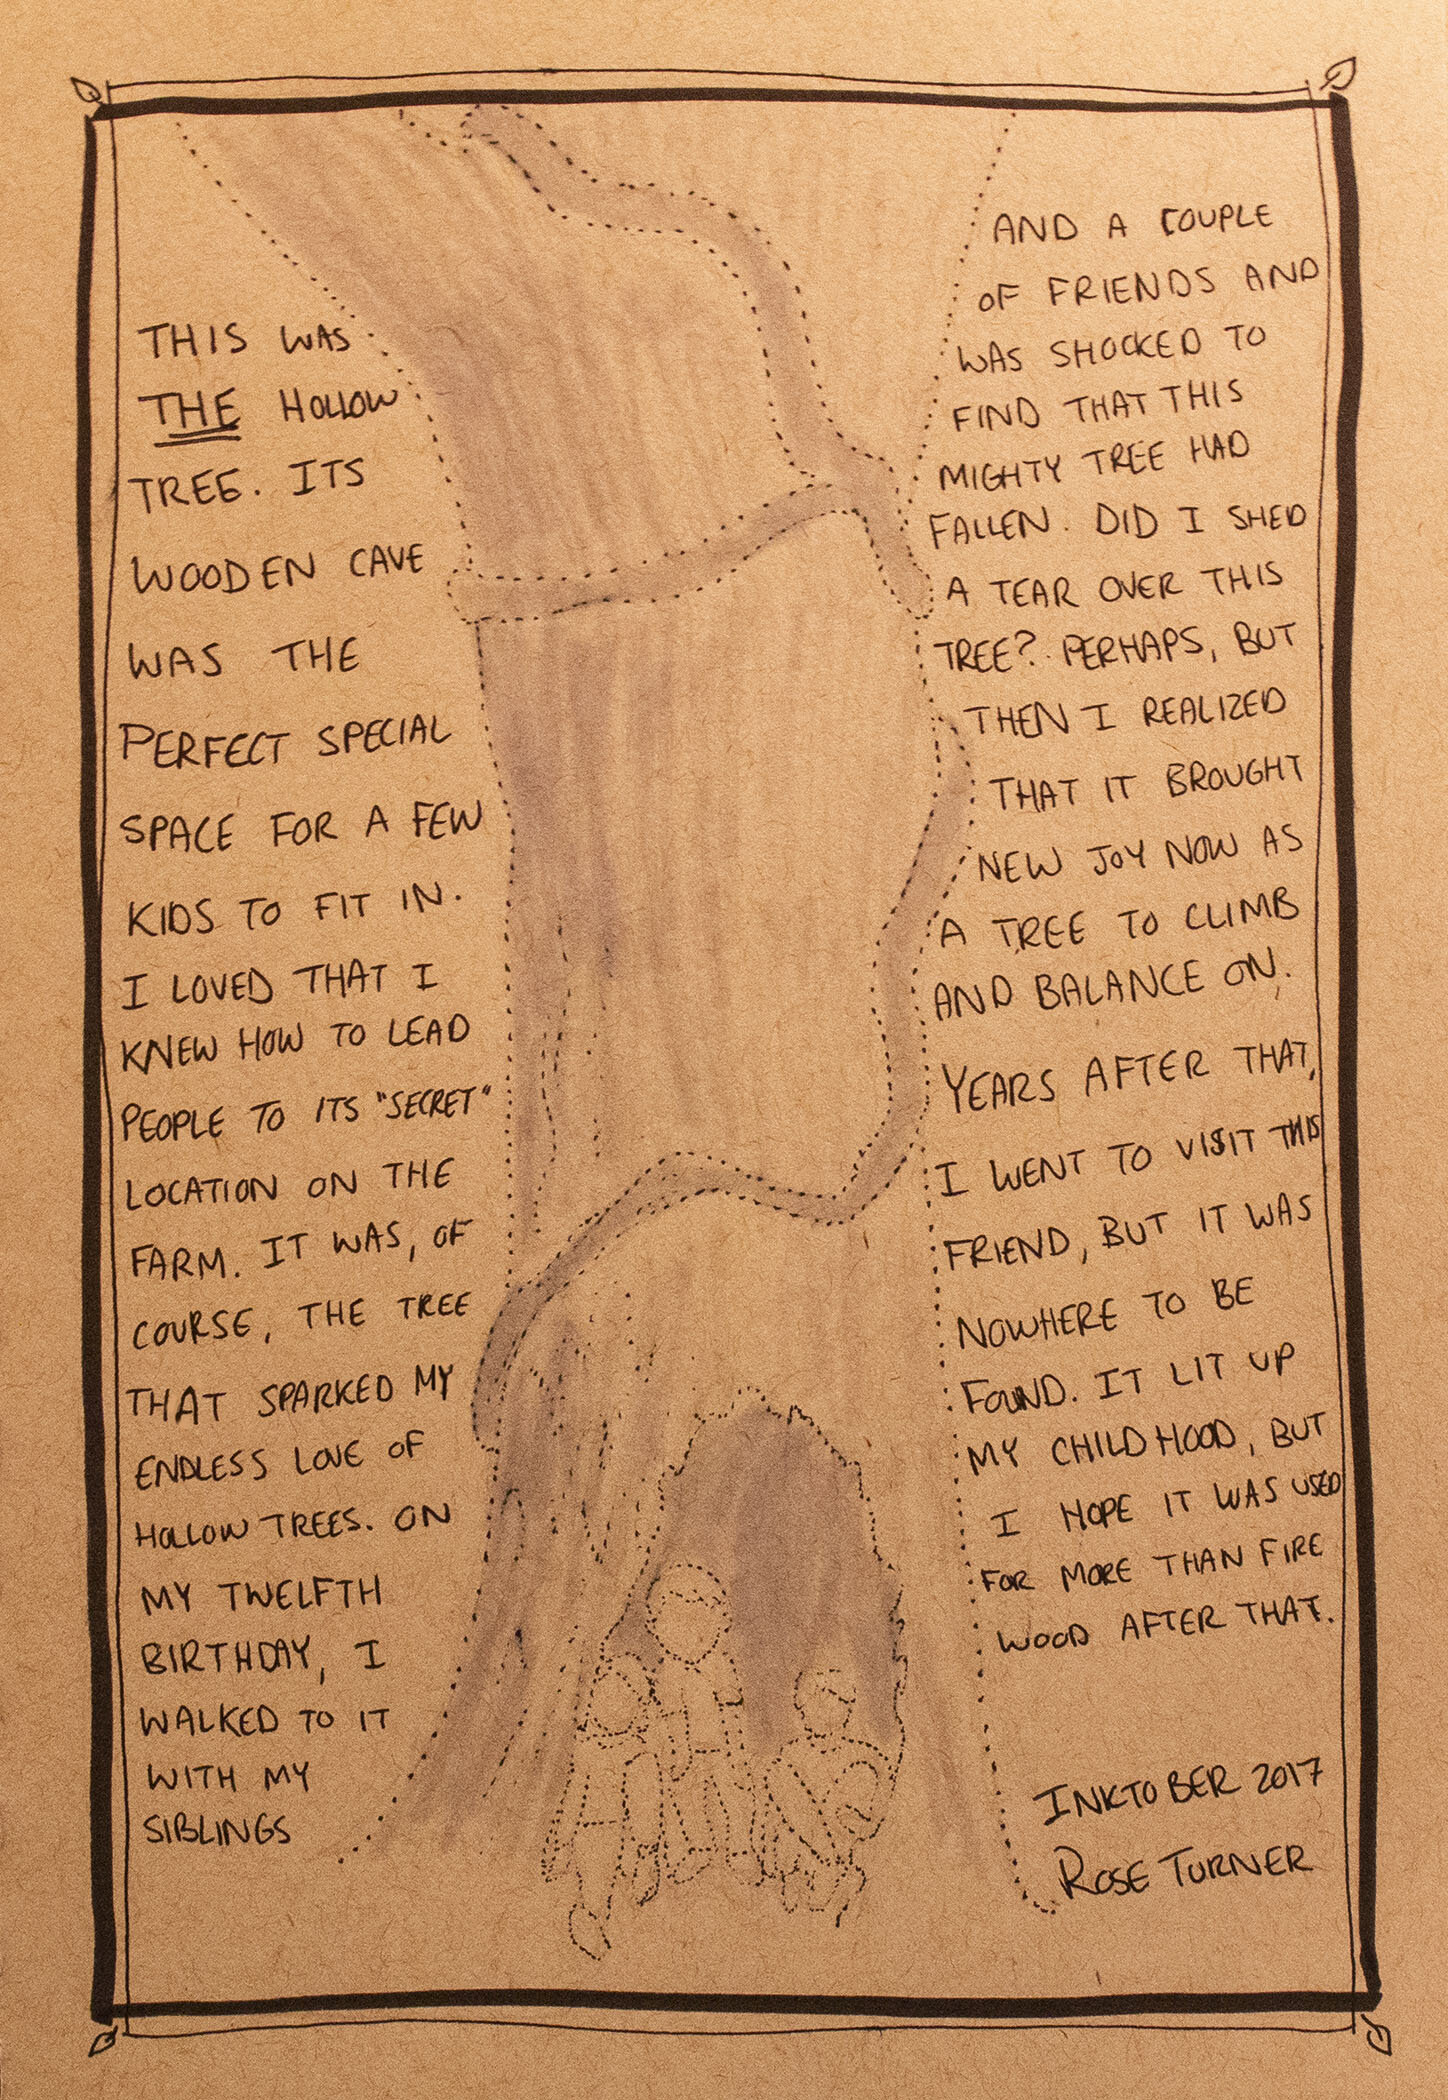 THIS WAS
THE HOLLOW
TREE. ITS
WOODEN CAVE
WAS THE
PERFECT SPECIAL
SPACE FOR A FEW
KIDS TO FIT IN.
I LOVED THAT I
KNEW HOW TO LEAD
PEOPLE TO ITS "SECRET"
LOCATION ON THE
FARM. IT WAS, OF
COURSE, THE TREE
THAT SPARKED MY
ENDLESS LOVE OF
HOLLOW TREES. ON
MY TWELFTH
BIRTHDAY, I
WALKED TO IT
WITH MY
SIBLINGS
AND A COUPLE
OF FRIENDS AND
WAS SHOCKED TO
FIND THAT THIS
MIGHTY TREE HAD
FALLEN. DID I SHED
A TEAR OVER THIS
TREE? PERHAPS, BUT
THEN I REALIZED
THAT IT BROUGHT
NEW JOY NOW AS
A TREE TO CLIMB
AND BALANCE ON.
YEARS AFTER THAT,
I WENT TO VISIT THIS
FRIEND, BUT IT WAS
NOWHERE TO BE
FOUND. IT LIT UP
MY CHILDHOOD, BUT
I HOPE IT WAS USED
FOR MORE THAN FIRE
WOOD AFTER THAT.
INKTOBER 2017
ROSE TURNER